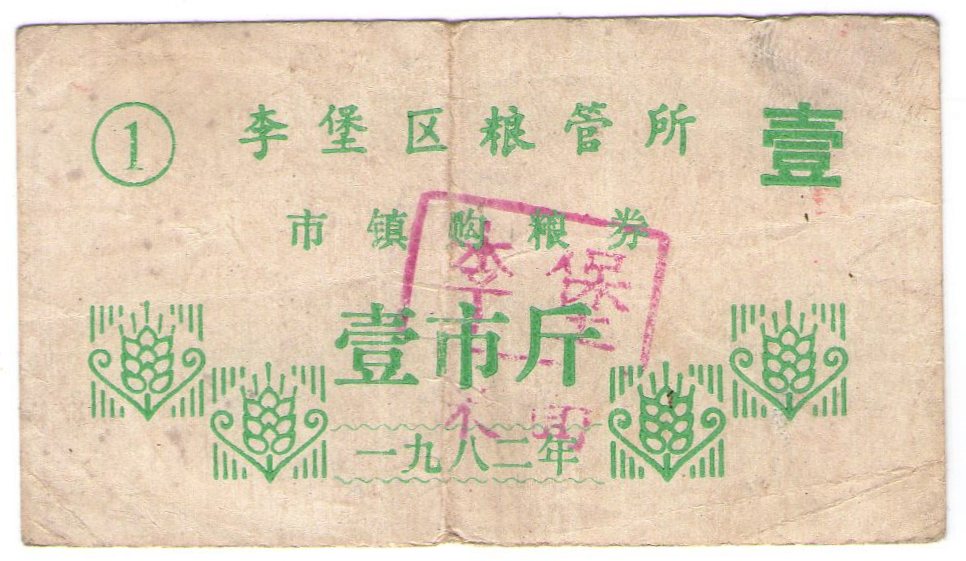 ① 李堡区粮管所 壹
市镇购粮券
李保
壹市斤
一九八二年